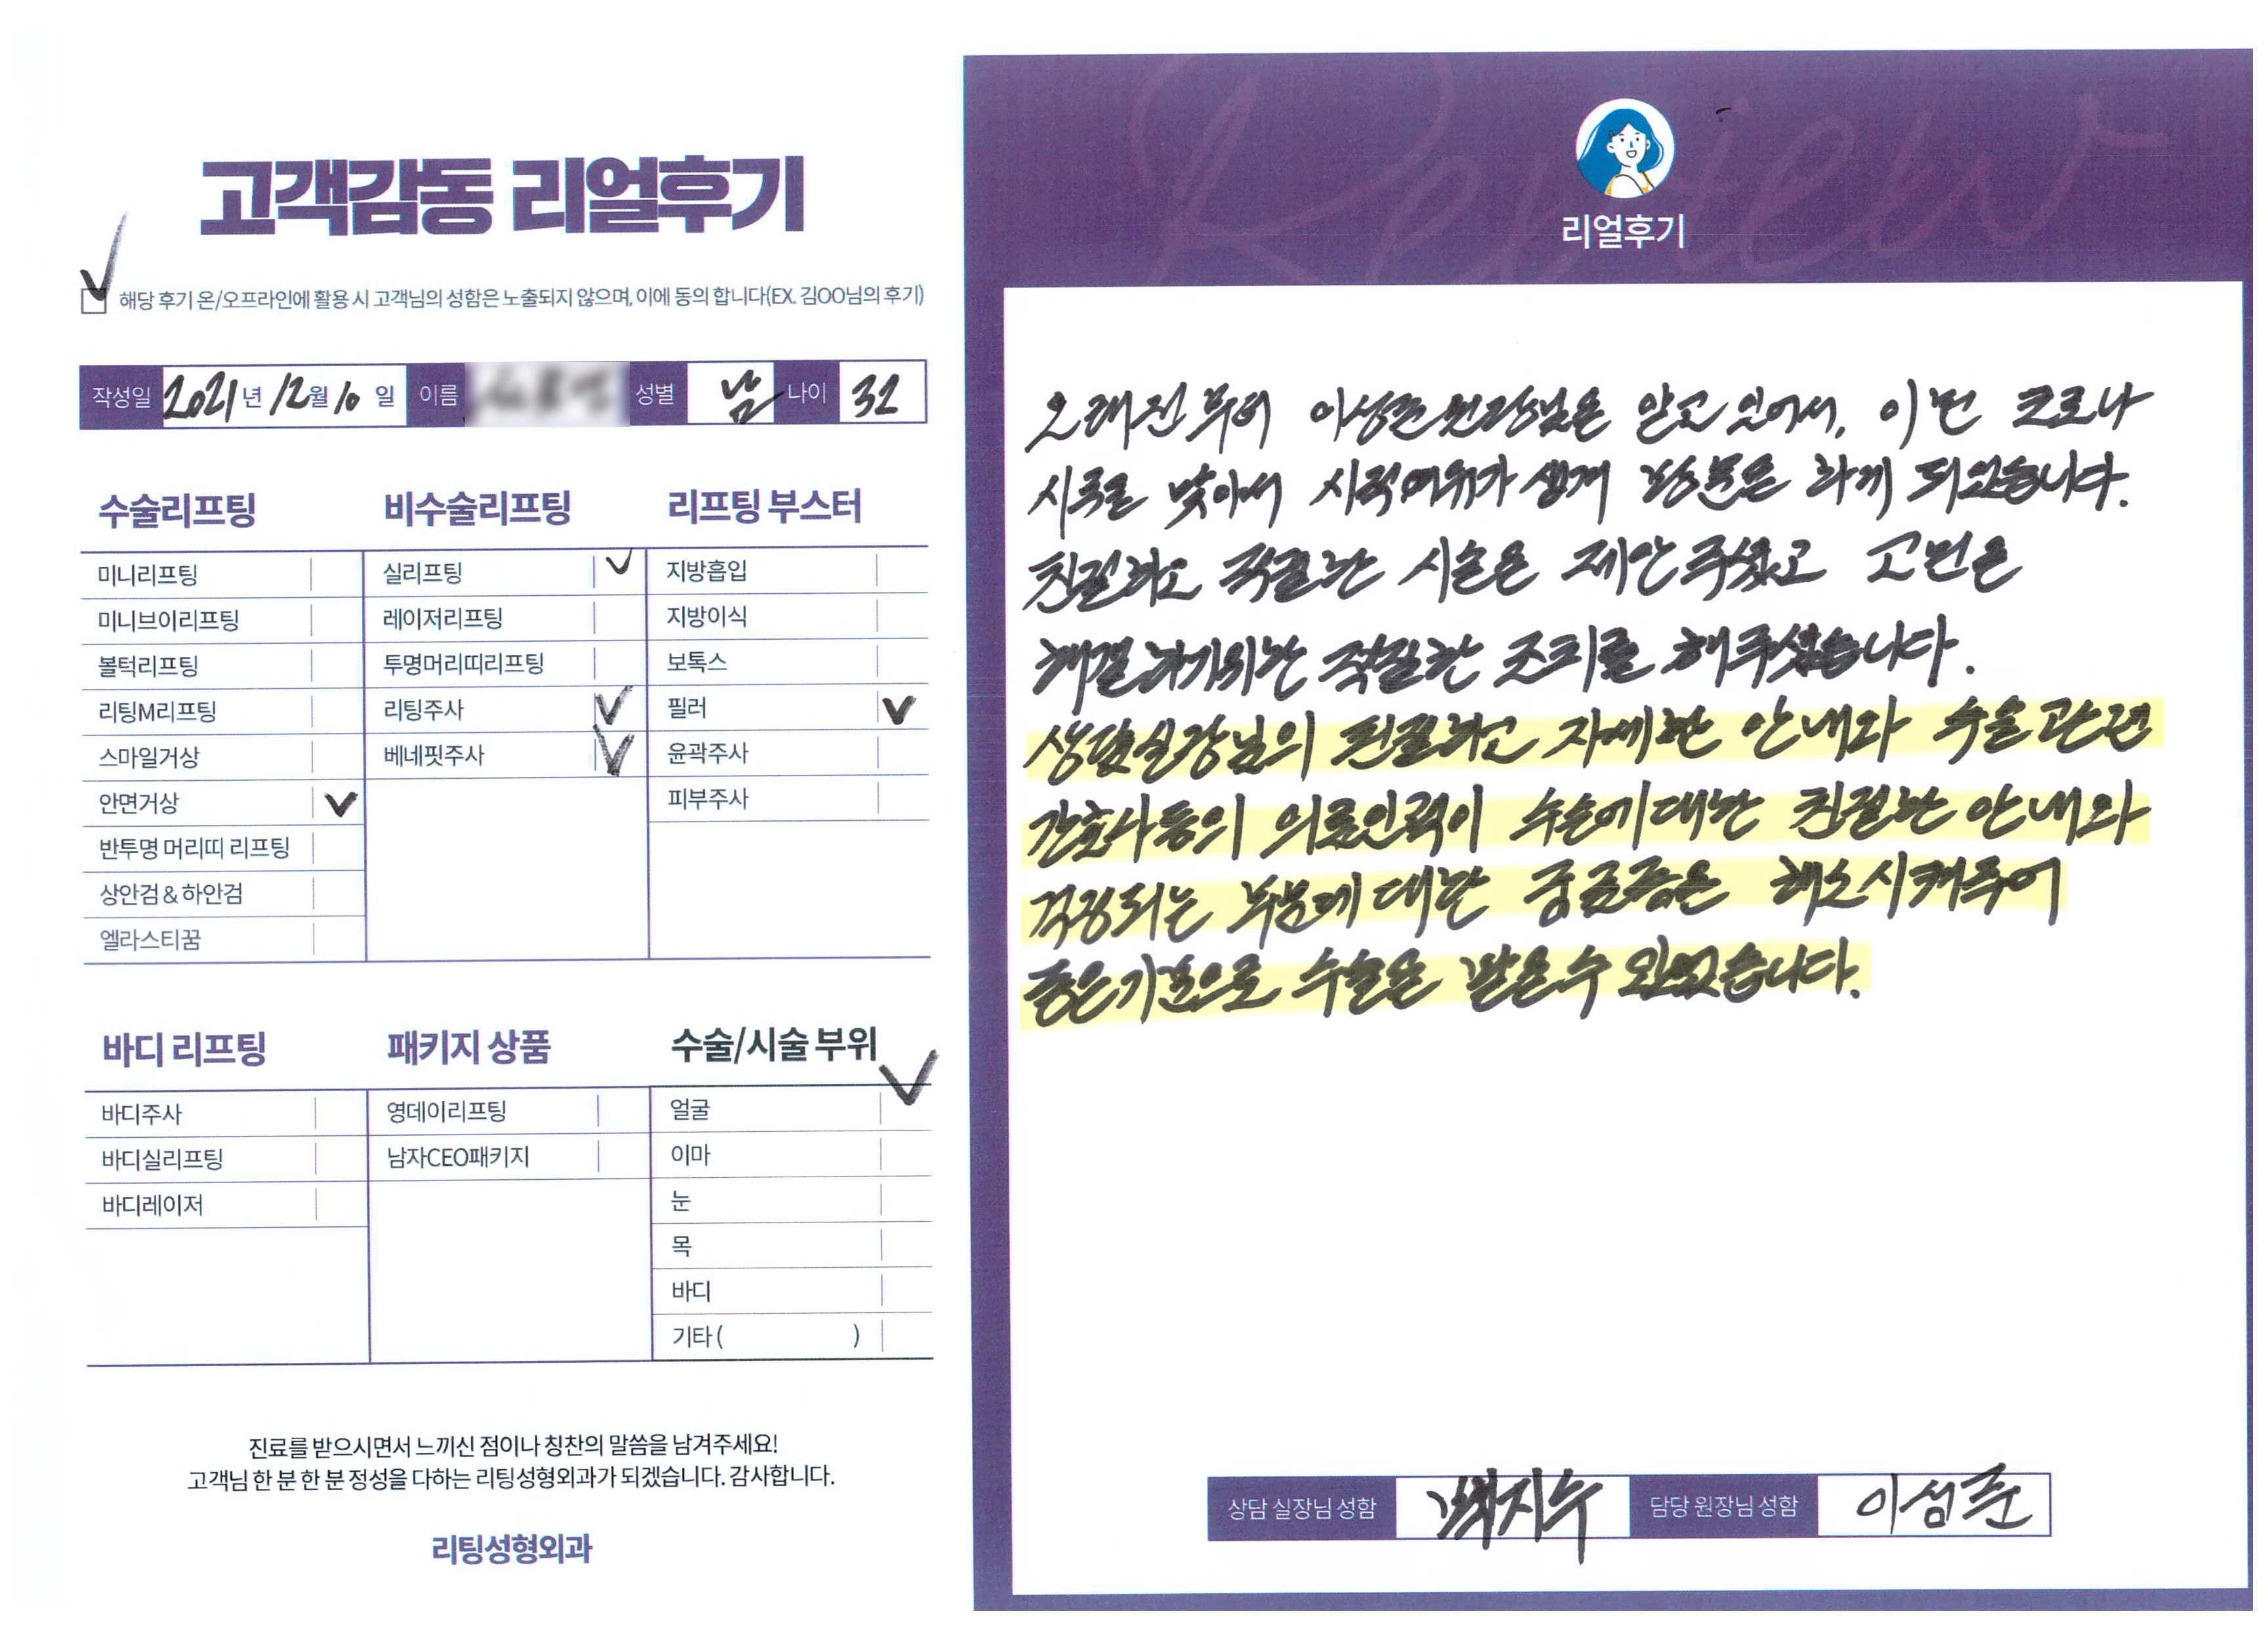 고객감동 리얼후기
해당 후기 온/오프라인에 활용 시 고객님의 성함은 노출되지 않으며, 이에 동의 합니다(EX. 김OO님의 후기)
작성일 2021년 12월 10일 이름 성별 남 나이 32
수술리프팅
미니리프팅
미니브이리프팅
볼턱리프팅
리팅M리프팅
스마일거상
안면거상
반투명 머리띠 리프팅
상안검 & 하안검
엘라스티꿈
비수술리프팅
실리프팅
레이저리프팅
투명머리띠리프팅
리팅주사
베네핏주사
리프팅 부스터
지방흡입
지방이식
보톡스
필러
윤곽주사
피부주사
바디 리프팅
바디주사
바디실리프팅
바디레이저
패키지 상품
영데이리프팅
남자CEO패키지
수술/시술 부위
얼굴
이마
눈
목
바디
기타 ( )
진료를 받으시면서 느끼신 점이나 칭찬의 말씀을 남겨주세요!
고객님 한 분 한 분 정성을 다하는 리팅성형외과가 되겠습니다. 감사합니다.
리팅성형외과
Review
리얼후기
오래전부터 이성준원장님을 알고 있어서, 이번 코로나
시국을 맞아서 시적여유가 생겨 방문을 하게 되었습니다.
친절하고 적절한 시술을 제안주셨고 고민을
해결하기위한 적절한 조치를 해주셨습니다.
상담실장님의 친절하고 자세한 안내와 수술관련
간호사등의 의료인력이 수술에대한 친절한 안내와
걱정되는 부분에 대한 궁금증을 해소시켜주어
좋은기분으로 수술을 받을수 있었습니다.
상담 실장님 성함 지수 담당 원장님 성함 이성준